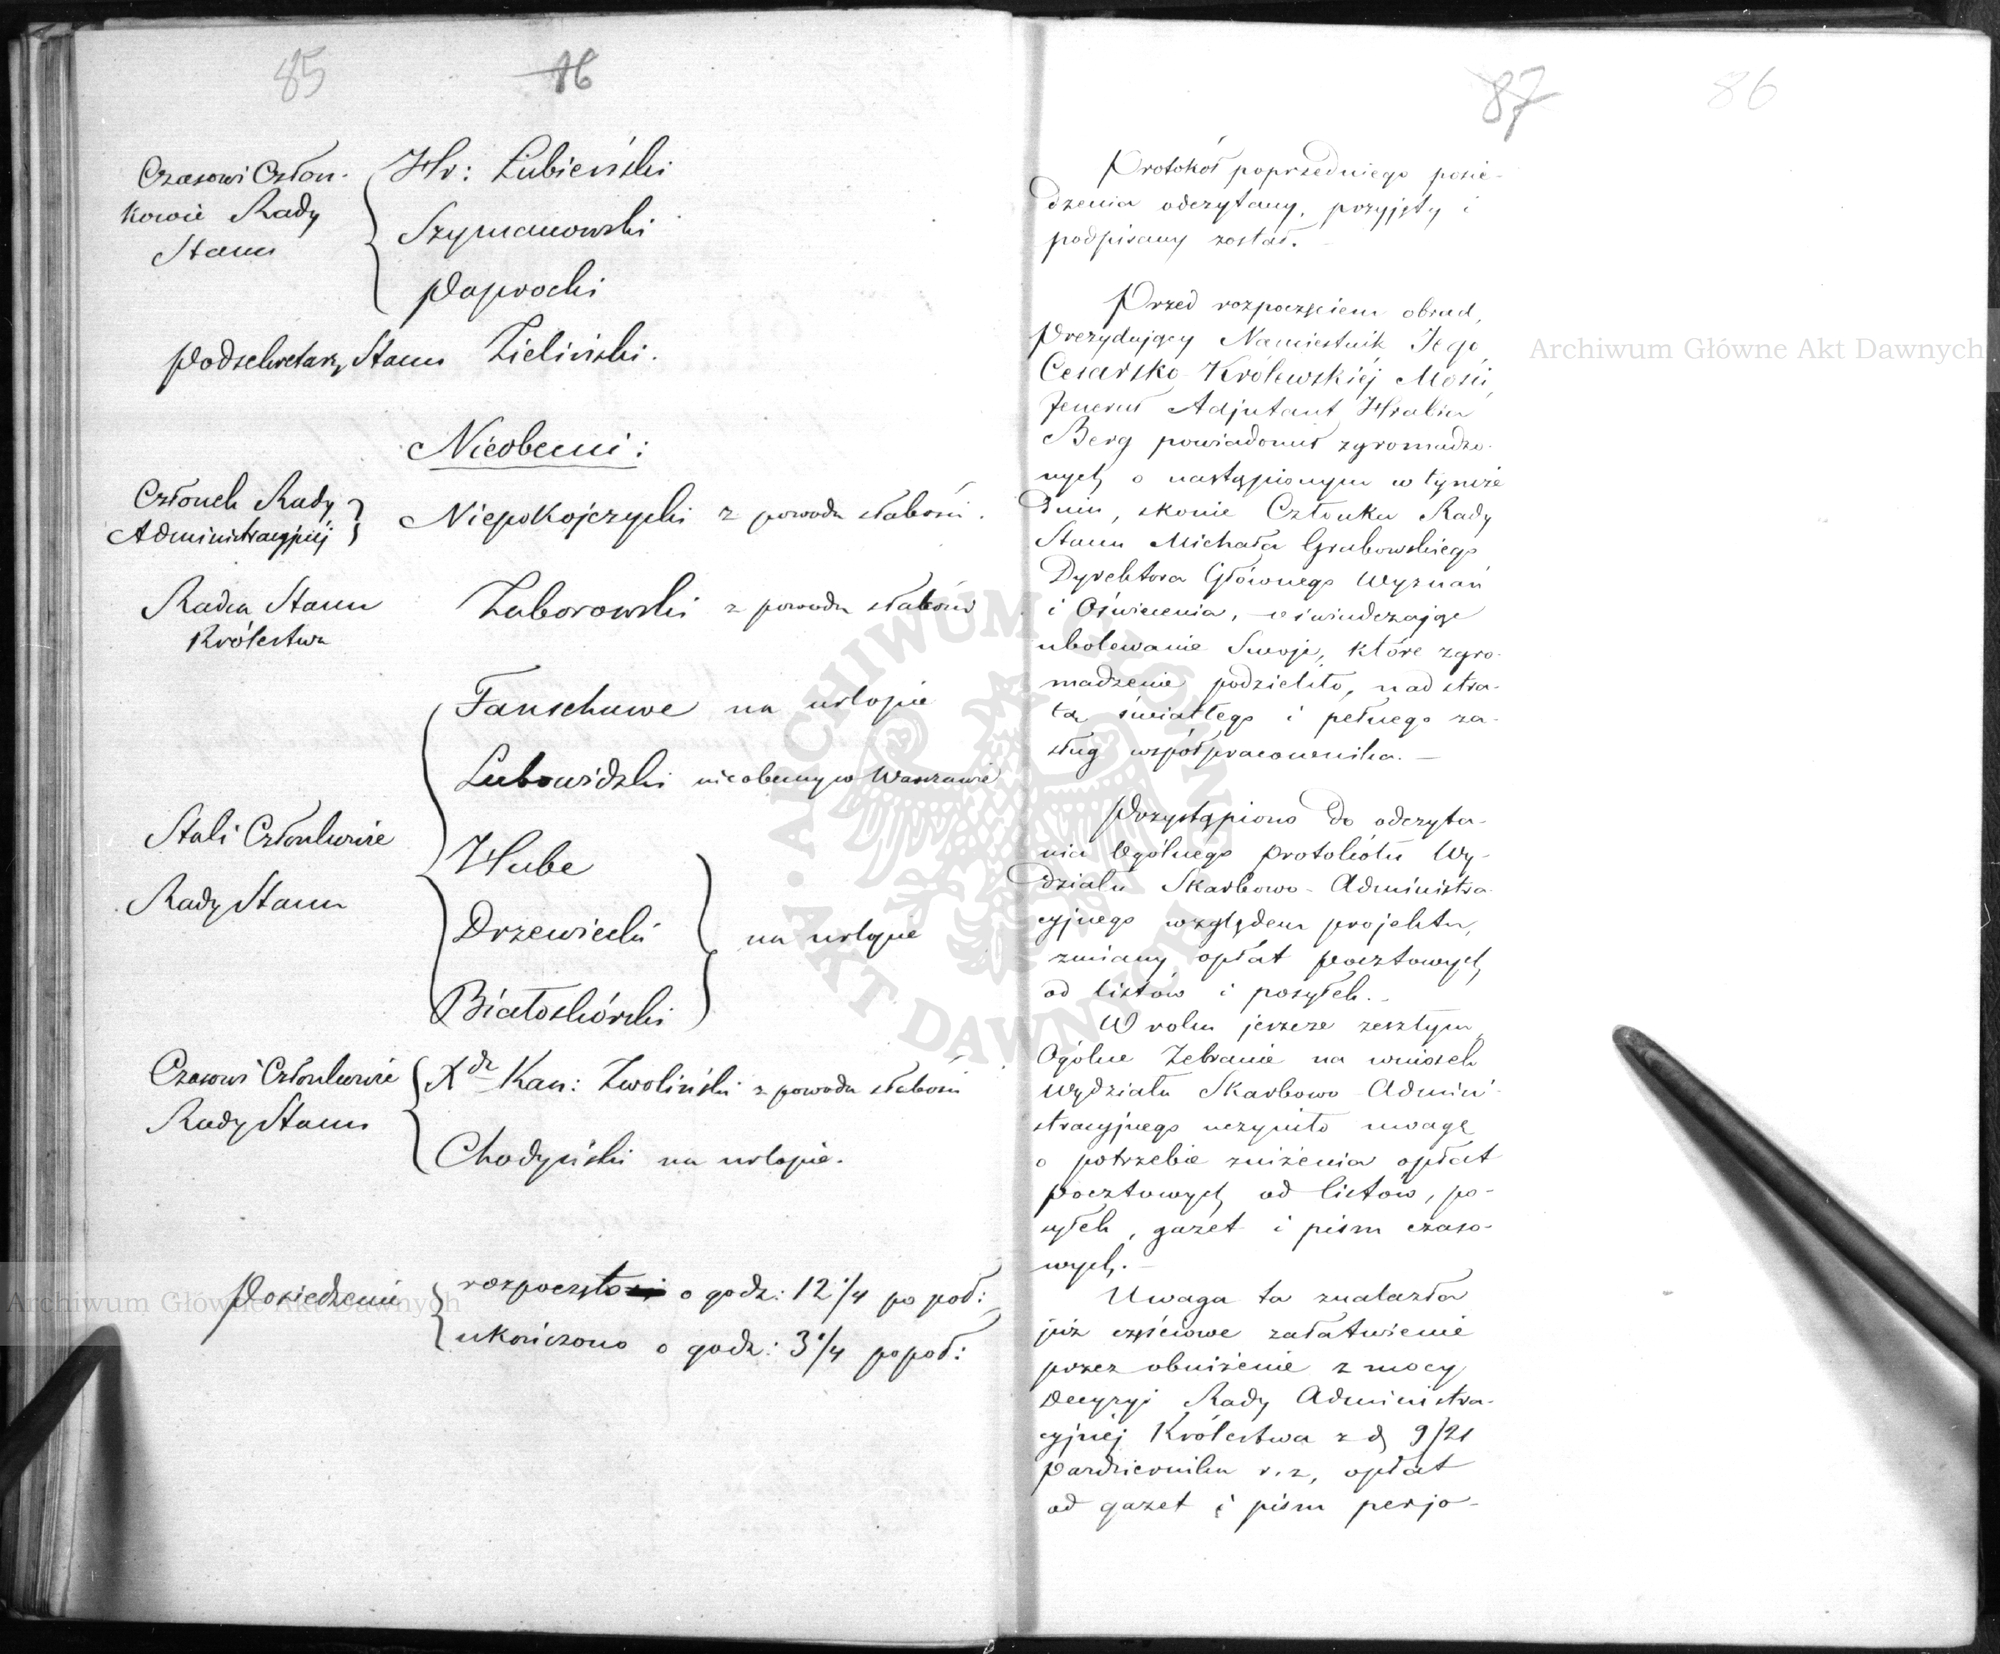 85 86
Czasowi Człon-
kowie Rady
Stanu
Hr: Łubieński
Szymanowski
Paprocki
Podsekretarz Stanu Zieliński.
Nieobecni:
Członek Rady
Administracyjnéj
Niepokojczycki z powodu słabości.
Radca Stanu
Królestwa
Zaborowski z powodu słabości
Stali Członkowie
Rady Stanu
Fanschawe na urlopie
Lubowidzki nieobecny w Warszawie
Hube
Drzewiecki na urlopie
Białoskórski
Czasowi Członkowie
Rady Stanu
X dz Kan: Zwoliński z powodu słabości
Chodyński na urlopie.
Posiedzenie
rozpoczęto o godz: 12 1/4 po poł:
ukończono o godz: 3 1/4 po poł:
87 86
Protokół poprzedniego posie-
dzenia odczytany, przyjęty i
podpisany został. —
Przed rozpoczęciem obrad,
Prezydujący Namiestnik Jego
Cesarsko-Królewskiéj Mości,
Jenerał Adjutant Hrabia
Berg powiadomił zgromadzo-
nych o nastąpionym w tymże
dniu, skonie Członka Rady
Stanu Michała Grabowskiego
Dyrektora Głównego Wyznań
i Oświecenia, oświadczając
ubolewanie Swoje, które zgro-
madzenie podzieliło, nad stra-
tą światłego i pełnego za-
sług współpracownika. —
Przystąpiono do odczyta-
nia Ogólnego Protokółu Wy-
działu Skarbowo-Administra-
cyjnego względem projektu,
zmiany opłat pocztowych
od listów i posyłek. —
W roku jeszcze zeszłym,
Ogólne Zebranie na wniosek
Wydziału Skarbowo-Admini-
stracyjnego uczyniło uwagę
o potrzebie zniżenia opłat
pocztowych od listów, po-
syłek, gazet i pism czaso-
wych. —
Uwaga ta znalazła
już częściowe załatwienie
przez obniżenie z mocy
Decyzyi Rady Administra-
cyjnéj Królestwa z d. 9/21
Października r.z, opłat
od gazet i pism perjo-
Archiwum Główne Akt Dawnych
Archiwum Główne Akt Dawnych
ARCHIWUM GŁÓWNE · AKT DAWNYCH ·